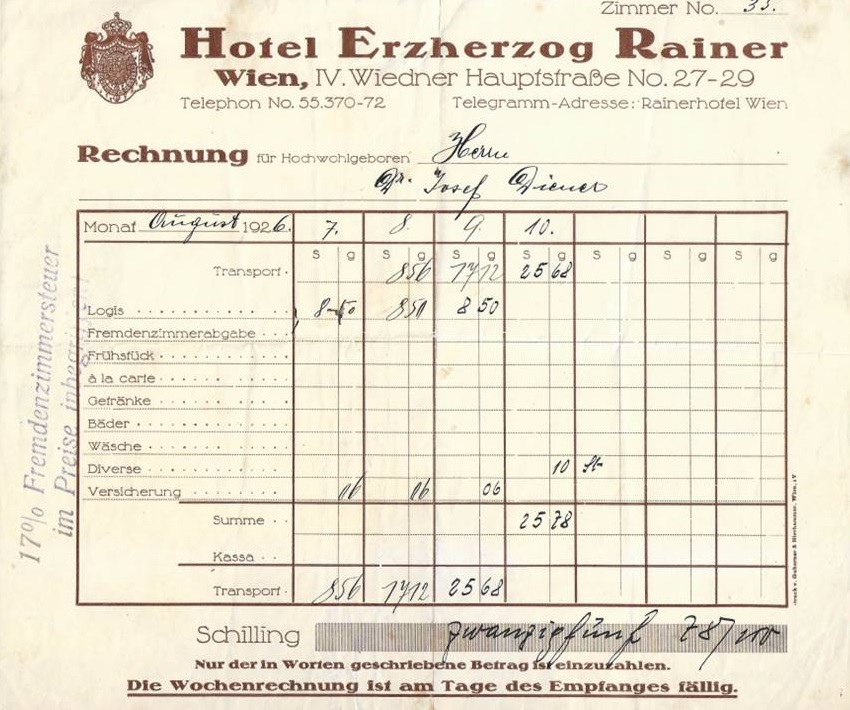 Zimmer No. 33.
Hotel Erzherzog Rainer
Wien, IV. Wiedner Hauptstraße No. 27-29
Telephon No. 55.370-72 Telegramm-Adresse: Rainerhotel Wien
Rechnung für Hochwohlgeboren Herrn
Dr. Josef Diener
Monat August 1926. 7. 8. 9. 10.
S g S g S g S g S g S g S g
Transport 856 1712 25 68
Logis 8 50 850 8 50
Fremdenzimmerabgabe
Frühstück
à la carte
Getränke
Bäder
Wäsche
Diverse 10 St
Versicherung 06 06 06
Summe 25 78
Kassa
Transport 856 1712 25 68
Schilling zwanzigfünf 78/100
Nur der in Worten geschriebene Betrag ist einzuzahlen.
Die Wochenrechnung ist am Tage des Empfanges fällig.
17% Fremdenzimmersteuer
im Preise inbegriffen